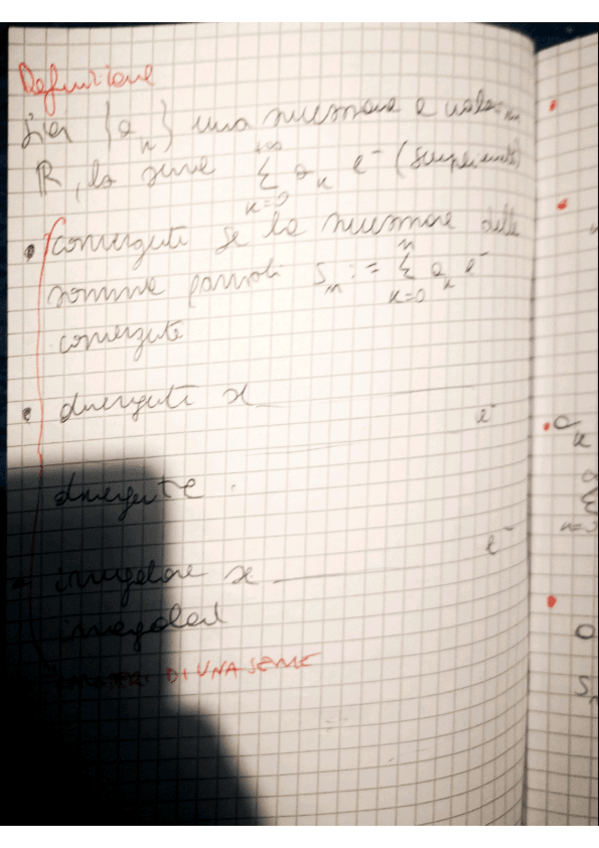 Definizione
Sia {a_n} una successione a valori in
R, la serie +∞ Σ k=0 a_k è (semplicemente)
• convergente se la successione delle
somme parziali S_n := n Σ k=0 a_k è
convergente
• divergente se ______ è
divergente.
• irregolare se ______ è
irregolare
DI UNA SERIE
• a_k
Σ
n=0
•
S_n